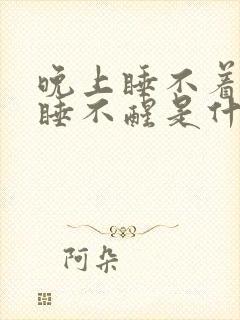 晚上睡不着
睡不醒是什
阿朵